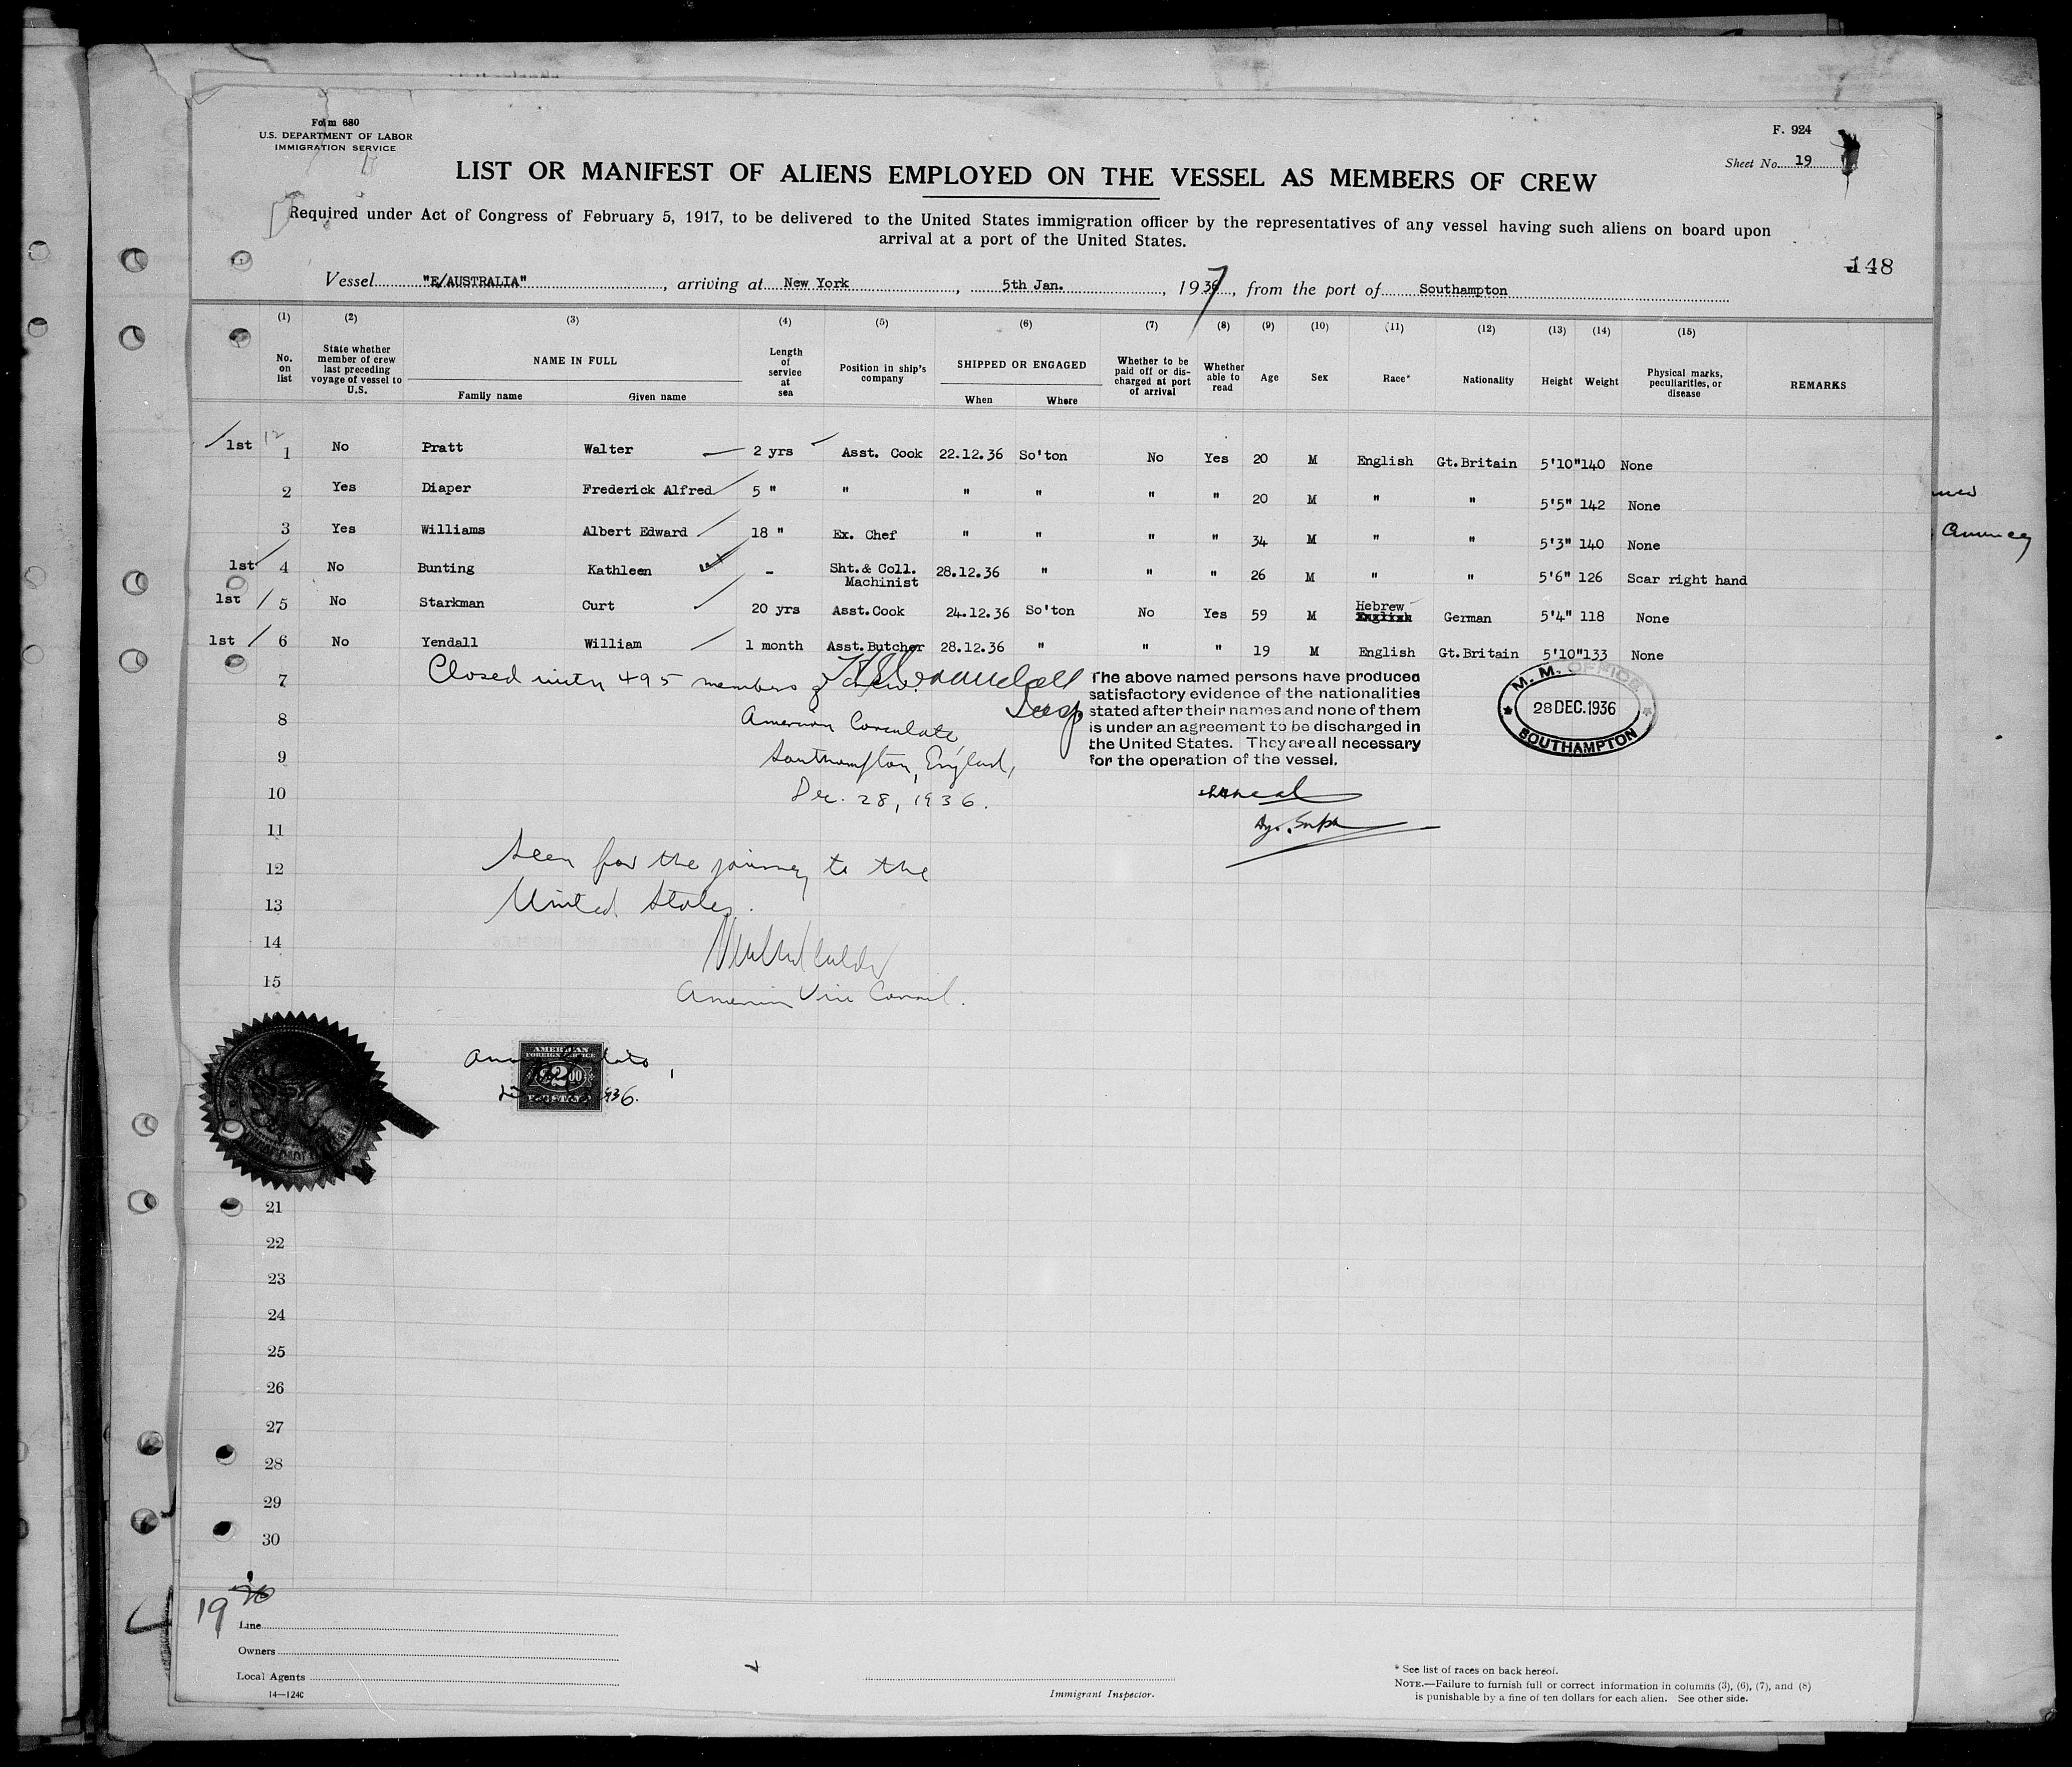 Form 680
U.S. DEPARTMENT OF LABOR
IMMIGRATION SERVICE
F. 924
Sheet No. 19
LIST OR MANIFEST OF ALIENS EMPLOYED ON THE VESSEL AS MEMBERS OF CREW
Required under Act of Congress of February 5, 1917, to be delivered to the United States immigration officer by the representatives of any vessel having such aliens on board upon
arrival at a port of the United States.
148
Vessel "E/AUSTRALIA", arriving at New York, 5th Jan., 1937, from the port of Southampton
(1) (2) (3) (4) (5) (6) (7) (8) (9) (10) (11) (12) (13) (14) (15)
No. on list
State whether member of crew last preceding voyage of vessel to U.S.
NAME IN FULL
Family name Given name
Length of service at sea
Position in ship's company
SHIPPED OR ENGAGED
When Where
Whether to be paid off or discharged at port of arrival
Whether able to read
Age Sex Race* Nationality Height Weight
Physical marks, peculiarities, or disease
REMARKS
1st 12 1 No Pratt Walter 2 yrs Asst. Cook 22.12.36 So'ton No Yes 20 M English Gt.Britain 5'10" 140 None
2 Yes Diaper Frederick Alfred 5 " " " " " " 20 M " " 5'5" 142 None
3 Yes Williams Albert Edward 18 " Ex. Chef " " " " 34 M " " 5'3" 140 None
1st 4 No Bunting Kathleen - Sht.& Coll. Machinist 28.12.36 " " " 26 M " " 5'6" 126 Scar right hand
1st 5 No Starkman Curt 20 yrs Asst.Cook 24.12.36 So'ton No Yes 59 M Hebrew English German 5'4" 118 None
1st 6 No Yendall William 1 month Asst.Butcher 28.12.36 " " " 19 M English Gt.Britain 5'10" 133 None
7 Closed with 495 members of crew.
Insp
The above named persons have produced
satisfactory evidence of the nationalities
stated after their names and none of them
is under an agreement to be discharged in
the United States. They are all necessary
for the operation of the vessel.
M. M. OFFICE
28 DEC. 1936
SOUTHAMPTON
8 American Consulate
9 Southampton, England,
10 Dec. 28, 1936.
11
12 Seen for the journey to the
13 United States.
14
15 American Vice Consul.
AMERICAN
FOREIGN SERVICE
$2.00
936.
21
22
23
24
25
26
27
28
29
30
19 20
Line
Owners
Local Agents
14—124C
Immigrant Inspector.
* See list of races on back hereof.
NOTE.—Failure to furnish full or correct information in columns (3), (6), (7), and (8)
is punishable by a fine of ten dollars for each alien. See other side.